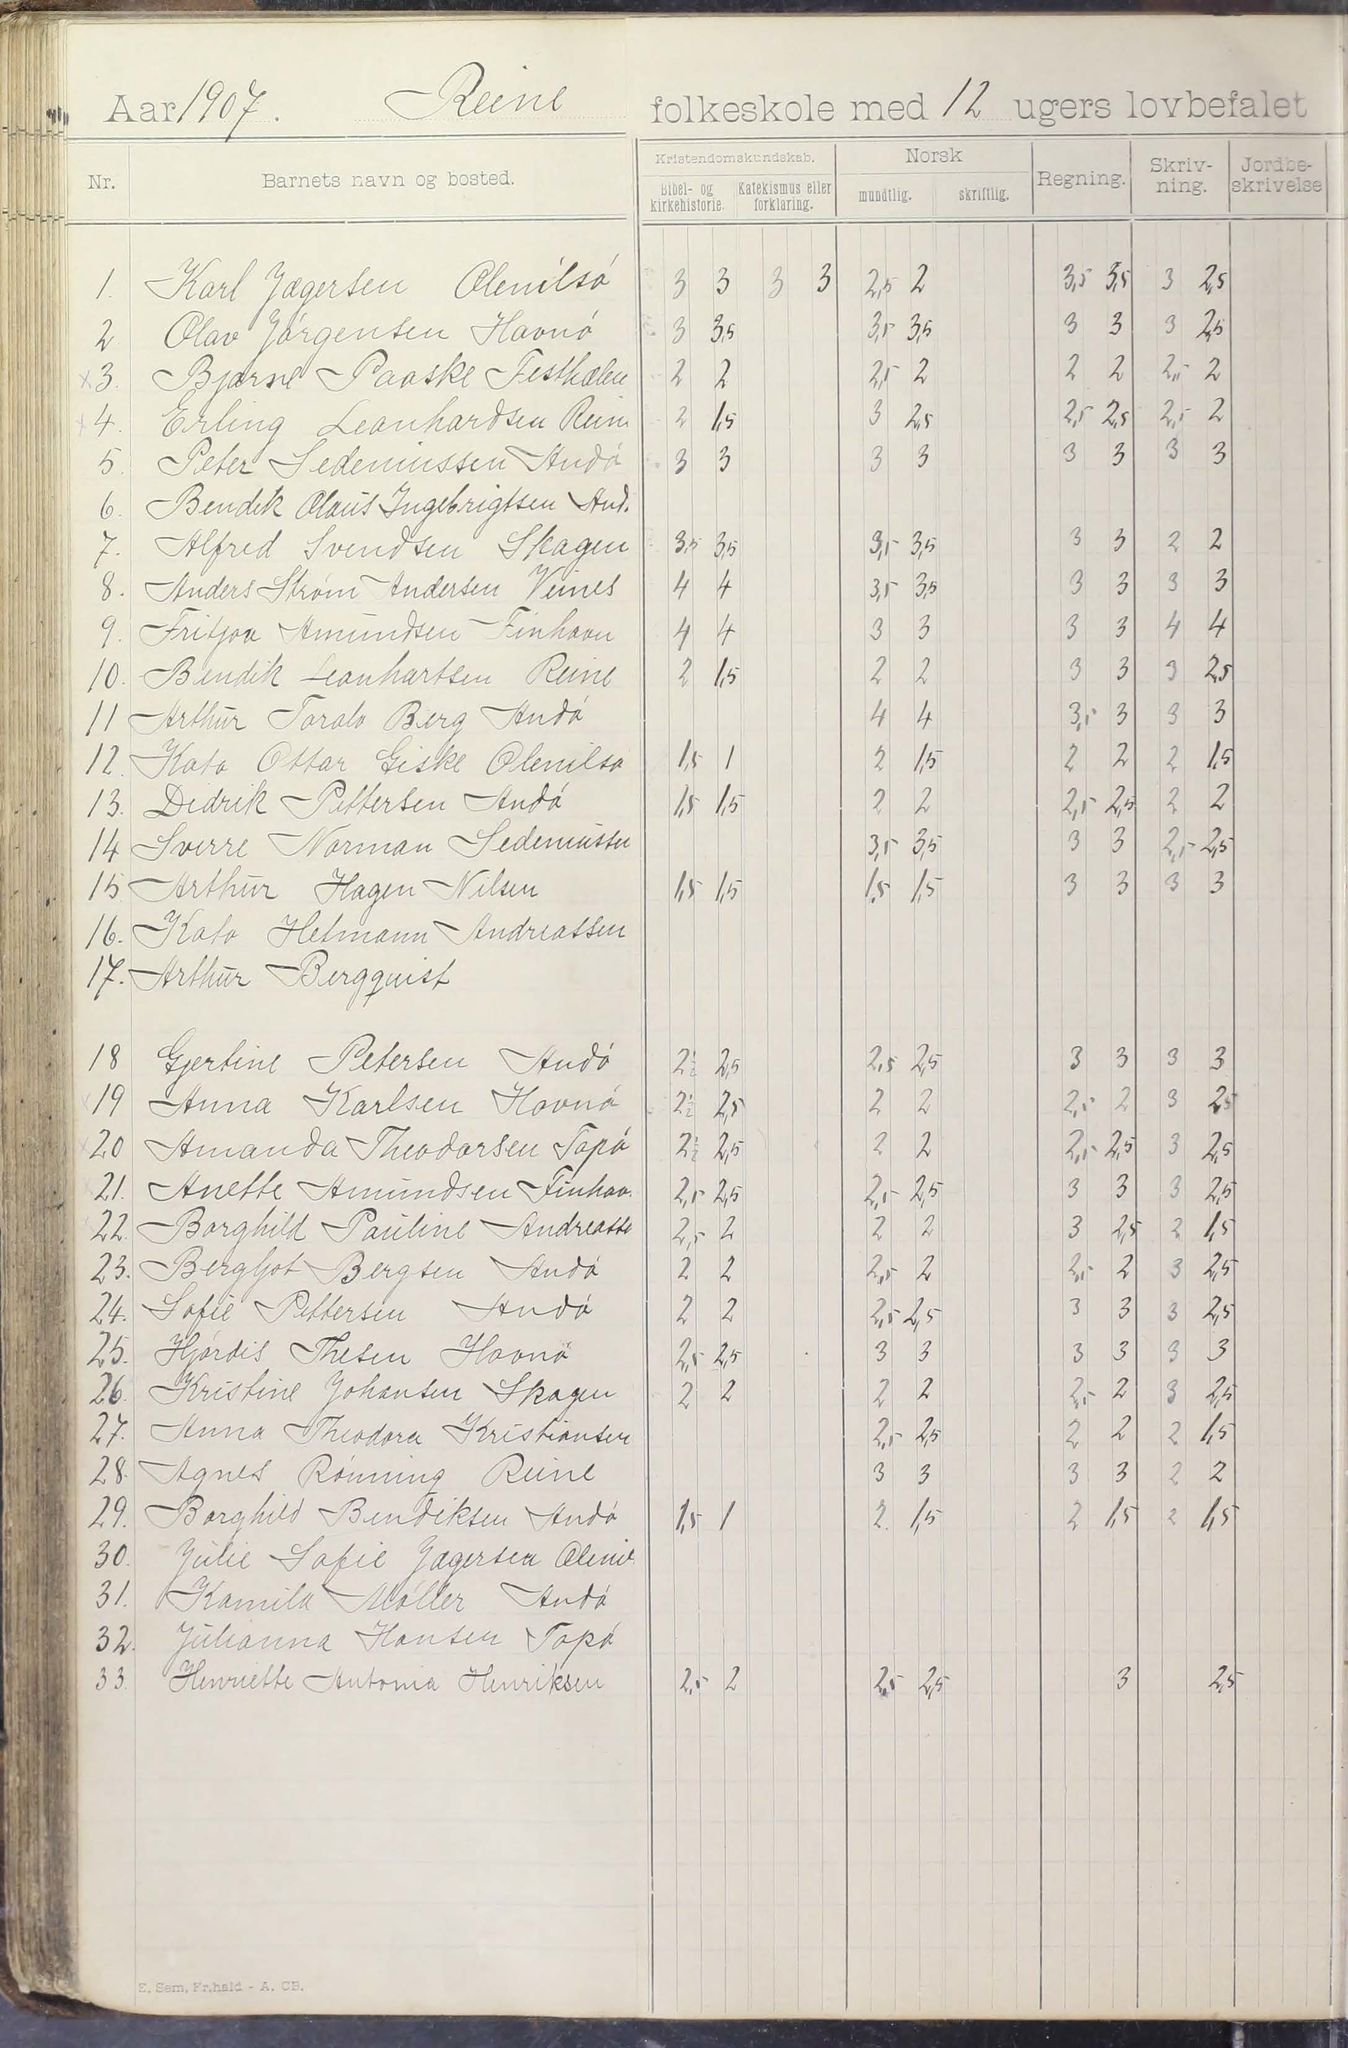 Aar 1907. Reine folkeskole med 12 ugers lovbefalet
Nr. Barnets navn og bosted. Kristendomskundskab. Norsk Regning. Skriv-ning. Jordbe-skrivelse
Bibel- og kirkehistorie. Katekismus eller forklaring. mundtlig. skriftlig.
1. Karl Jægersen Olenilsö 3 3 3 3 2,5 2 3,5 3,5 3 2,5
2 Olav Jörgensen Havnö 3 3,5 3,5 3,5 3 3 3 2,5
x3. Bjarne Paaske Festhælen 2 2 2,5 2 2 2 2,5 2
x4. Erling Leonhardsen Rein 2 1,5 3 2,5 2,5 2,5 2,5 2
5. Peter Sedeniussen Andö 3 3 3 3 3 3 3 3
6. Bendik Olaus Ingebrigtsen And.
7. Alfred Svendsen Skagen 3,5 3,5 3,5 3,5 3 3 2 2
8. Anders Strøm Andersen Veines 4 4 3,5 3,5 3 3 3 3
9. Fritjov Amundsen Finhavn 4 4 3 3 3 3 4 4
10. Bendik Leonhartsen Reine 2 1,5 2 2 3 3 3 2,5
11 Arthur Toralv Berg Andö 4 4 3,5 3 3 3
12. Kato Ottar Giske Olenilsö 1,5 1 2 1,5 2 2 2 1,5
13. Didrik Pettersen Andö 1,5 1,5 2 2 2,5 2,5 2 2
14 Sverre Norman Sedeniussen 3,5 3,5 3 3 2,5 2,5
15 Arthur Hagen Nilsen 1,5 1,5 1,5 1,5 3 3 3 3
16. Kato Helmann Andreassen
17. Arthur Bergquist
18 Gjertine Petersen Andö 2½ 2,5 2,5 2,5 3 3 3 3
x19 Anna Karlsen Havnö 2½ 2,5 2 2 2,5 2 3 2,5
x20 Amanda Theodorsen Tapö 2½ 2,5 2 2 2,5 2,5 3 2,5
21. Anette Amundsen Finhav. 2,5 2,5 2,5 2,5 3 3 3 2,5
22. Borghild Pauline Andreasse 2,5 2 2 2 3 2,5 2 1,5
23. Bergljot Bergsen Andö 2 2 2,5 2 2,5 2 3 2,5
24. Sofie Pettersen Andö 2 2 2,5 2,5 3 3 3 2,5
25. Hjördis Thesen Havnö 2,5 2,5 3 3 3 3 3 3
26. Kristine Johansen Skagen 2 2 2 2 2,5 2 3 2,5
27. Anna Theodora Kristiansen 2,5 2,5 2 2 2 1,5
28. Agnes Rönning Reine 3 3 3 3 2 2
29. Borghild Bendiksen Andö 1,5 1 2. 1,5 2 1,5 2 1,5
30. Julie Sofie Jægersen Olenil.
31. Kamila Möller Andö
32. Julianna Hansen Tapö
33. Henriette Antonia Henriksen 2,5 2 2,5 2,5 3 2,5
E. Sem, Fr.hald - A. CB.